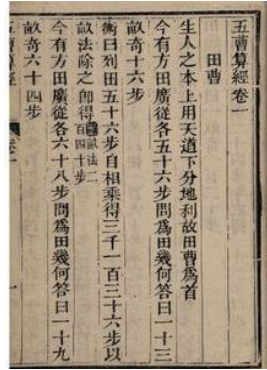 五曹算經卷一
田曹
生人之本上用天道下分地利故田曹爲首
今有方田廣從各五十六步問爲田幾何答曰一十三
畝奇十六步
術曰列田五十六步自相乘得三千一百三十六步以
畝法除之即得畝法二百四十步
今有方田廣從各六十八步問爲田幾何答曰一十九
畝奇六十四步